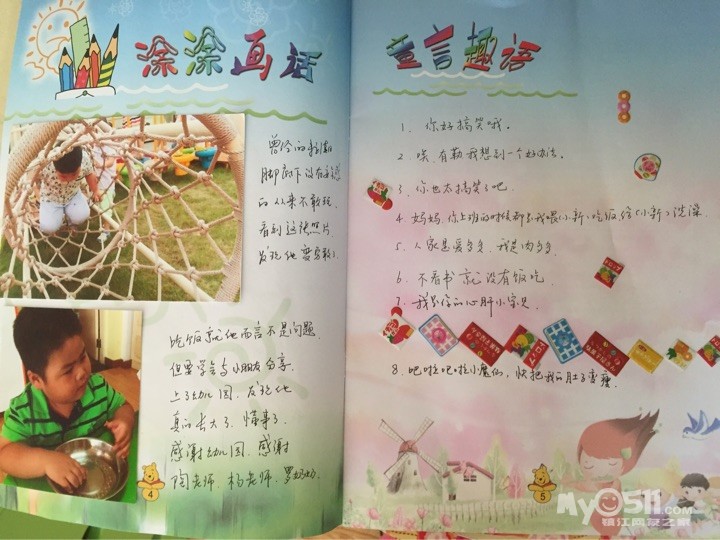 涂涂画话
曾经的
脚底下没有
的从来不敢玩,
看到这张照片,
发现他变勇敢了
吃饭就他而言不是问题
但要学会与小朋友分享.
上了幼儿园.发现他
真的长大了.懂事了.
感谢幼儿园.感谢
陶老师.杨老师.罗妈妈.
4
童言趣语
1. 你好搞笑哦。
2. 唉.有勒我想到一个好办法。
3. 你也太搞笑了吧
4 妈妈 你上班的时候都与我喂(小新)吃饭 给(小新)洗澡
5. 人家是爱多多.我是肉多多.
6. 不看书就没有饭吃
7. 我是你的心肝小宝贝
8. 吧啦吧啦小魔仙,快把我的肚子变瘦.
5
My0511.com
镇江网友之家